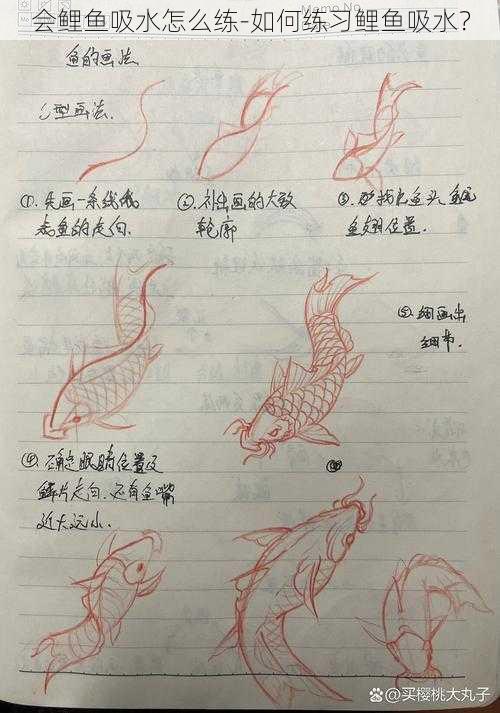 会鲤鱼吸水怎么练-如何练习鲤鱼吸水?
Memo No.
鱼的画法
S型画法.
①. 先画一条线代
表鱼的走向.
②. 补出画的大致
轮廓
③. 再找出鱼头 鱼尾
鱼翅位置.
④. 确定眼睛位置及
鳞片走向. 还有鱼嘴
近大远小.
⑤. 细画出
细节.
@买樱桃大丸子